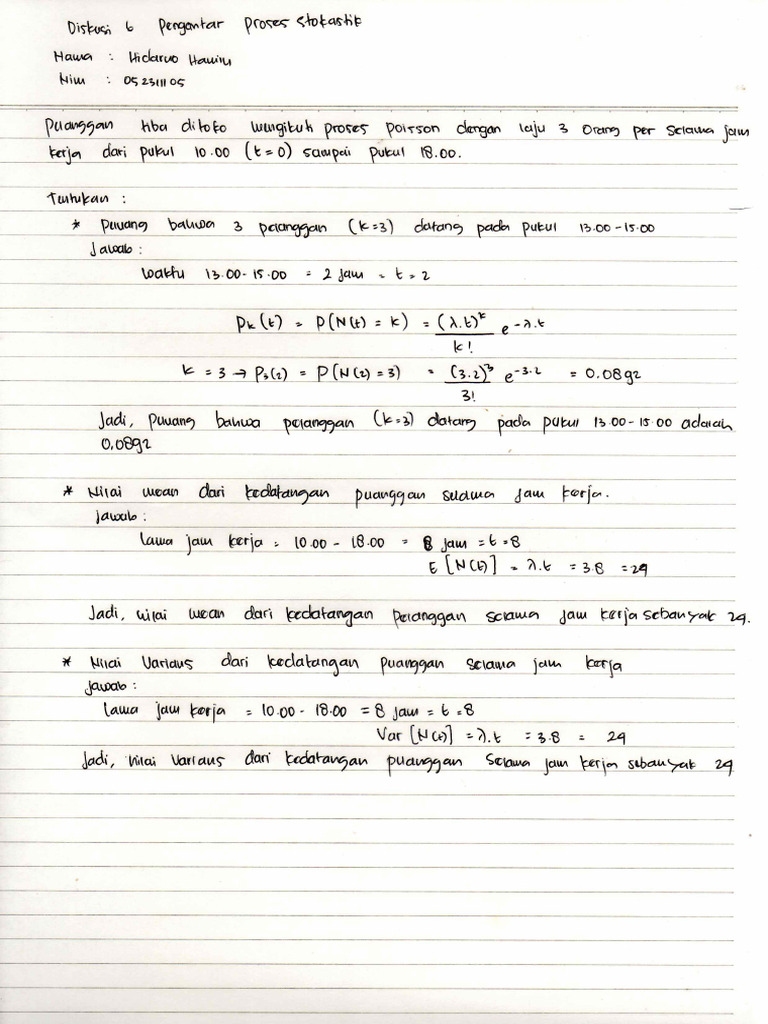 Diskusi 6 Pengantar Proses Stokastik
Nama : Hidarwo
Nim : 052311105
Pelanggan tiba ditoko mengikuti proses poisson dengan laju 3 orang per selama jam
kerja dari pukul 10.00 (t=0) sampai pukul 18.00.
Tentukan :
* Peluang bahwa 3 pelanggan (k=3) datang pada pukul 13.00-15.00
Jawab :
Waktu 13.00-15.00 = 2 jam = t = 2
Pk(t) = P(N(t) = k) = (λ.t)^k / k! e^-λ.t
k = 3 → P3(2) = P(N(2) = 3) = (3.2)^3 / 3! e^-3.2 = 0.0892
Jadi, Peluang bahwa pelanggan (k=3) datang pada pukul 13.00-15.00 adalah
0,0892
* Nilai mean dari kedatangan pelanggan selama jam kerja.
Jawab :
Lama jam kerja = 10.00 - 18.00 = 8 jam = t = 8
E [N(t)] = λ.t = 3.8 = 24
Jadi, nilai mean dari kedatangan pelanggan selama jam kerja sebanyak 24.
* Nilai Varians dari kedatangan pelanggan selama jam kerja
Jawab :
Lama jam kerja = 10.00 - 18.00 = 8 jam = t = 8
Var [N(t)] = λ.t = 3.8 = 24
Jadi, nilai varians dari kedatangan pelanggan selama jam kerja sebanyak 24